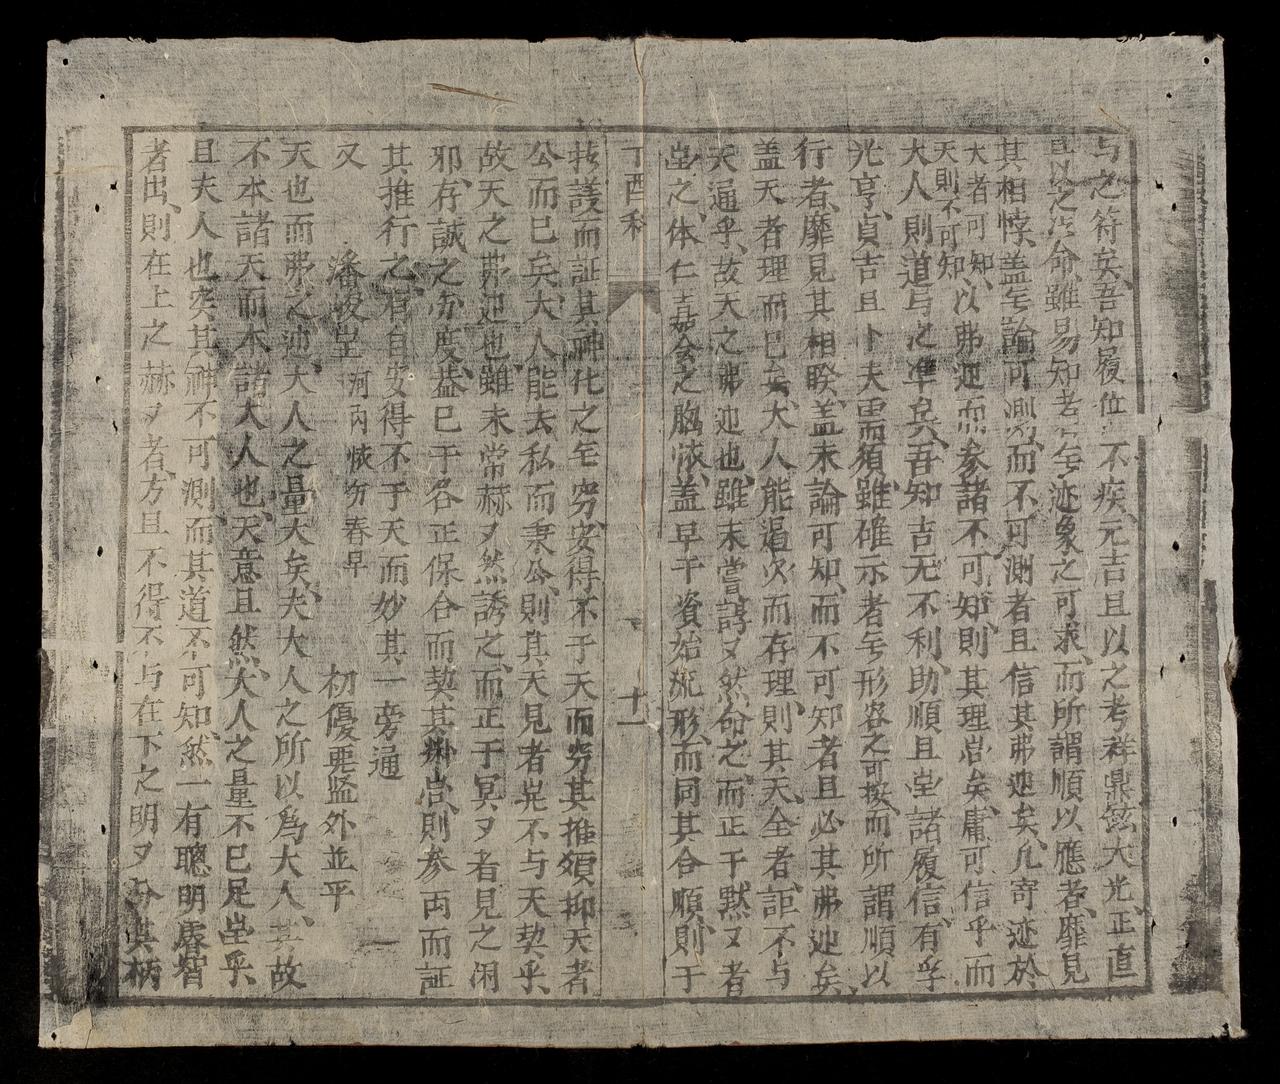 与之符矣吾知履位不疚元吉且以之考祥鼎鉉大光正直
且以之凝命雖易知者無迹象之可求而所謂順以應者靡見
其相悖盖無論可測而不可測者且信其弗迎矣凡寄迹於
大者可知以弗迎而参諸不可知則其理岂矣庸可信乎而
天則不可知
大人則道与之準矣吾知吉无不利助順且堂諸履信有孚
光亨貞吉且卜夫需須雖確示者無形容之可擬而所謂順以
行者靡見其相暌盖未論可知而不可知者且必其弗迎矣
盖天者理而已矣大人能遏欠而存理則其天全者詎不与
天通乎故天之弗迎也雖未嘗諄〻然命之而正于默〻者
堂之体仁嘉会之胸懐盖早于資始流形而同其合順則于
丁酉科
十一
扶護而証其神化之無穷安得不于天而穷其推頌抑天者
公而已矣大人能去私而秉公則其天見者岂不与天契乎
故天之弗迎也雖未常赫〻然誘之而正于冥〻者見之闲
邪存誠之亦度益已于各正保合而契其岂則参両而証
其推行之有自安得不于天而妙其一旁通
又 潘峻堂 河内懐穷春早 初優要監外並平
天也而弗之迎大人之量大矣夫大人之所以為大人其故
不本諸天而本諸大人也天意且然大人之量不已足岂乎
且夫人也突其神不可測而其道不可知然一有聰明睿智
者出則在上之赫〻者方且不得不与在下之明〻分其柄